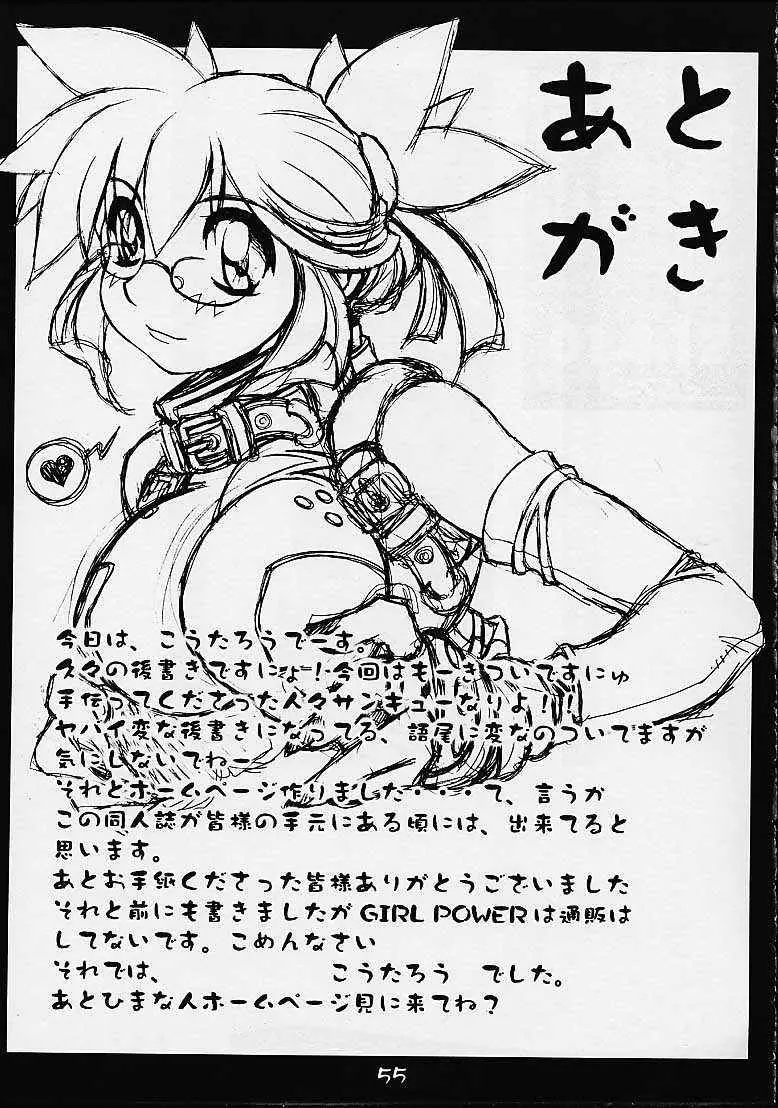 あとがき
今日は、こうたろうでーす。
久々の後書きですにょー!今回はもーきついですにゅ
手伝ってくださった人々サンキューなりよ!!
ヤバイ変な後書きになってる、語尾に変なのついてますが
気にしないでねー
それとホームページ作りました・・・て、言うか
この同人誌が皆様の手元にある頃には、出来てると
思います。
あとお手紙くださった皆様ありがとうございました
それと前にも書きましたがGIRL POWERは通販は
してないです。ごめんなさい
それでは、 こうたろう でした。
あとひまな人ホームページ見に来てね?
55